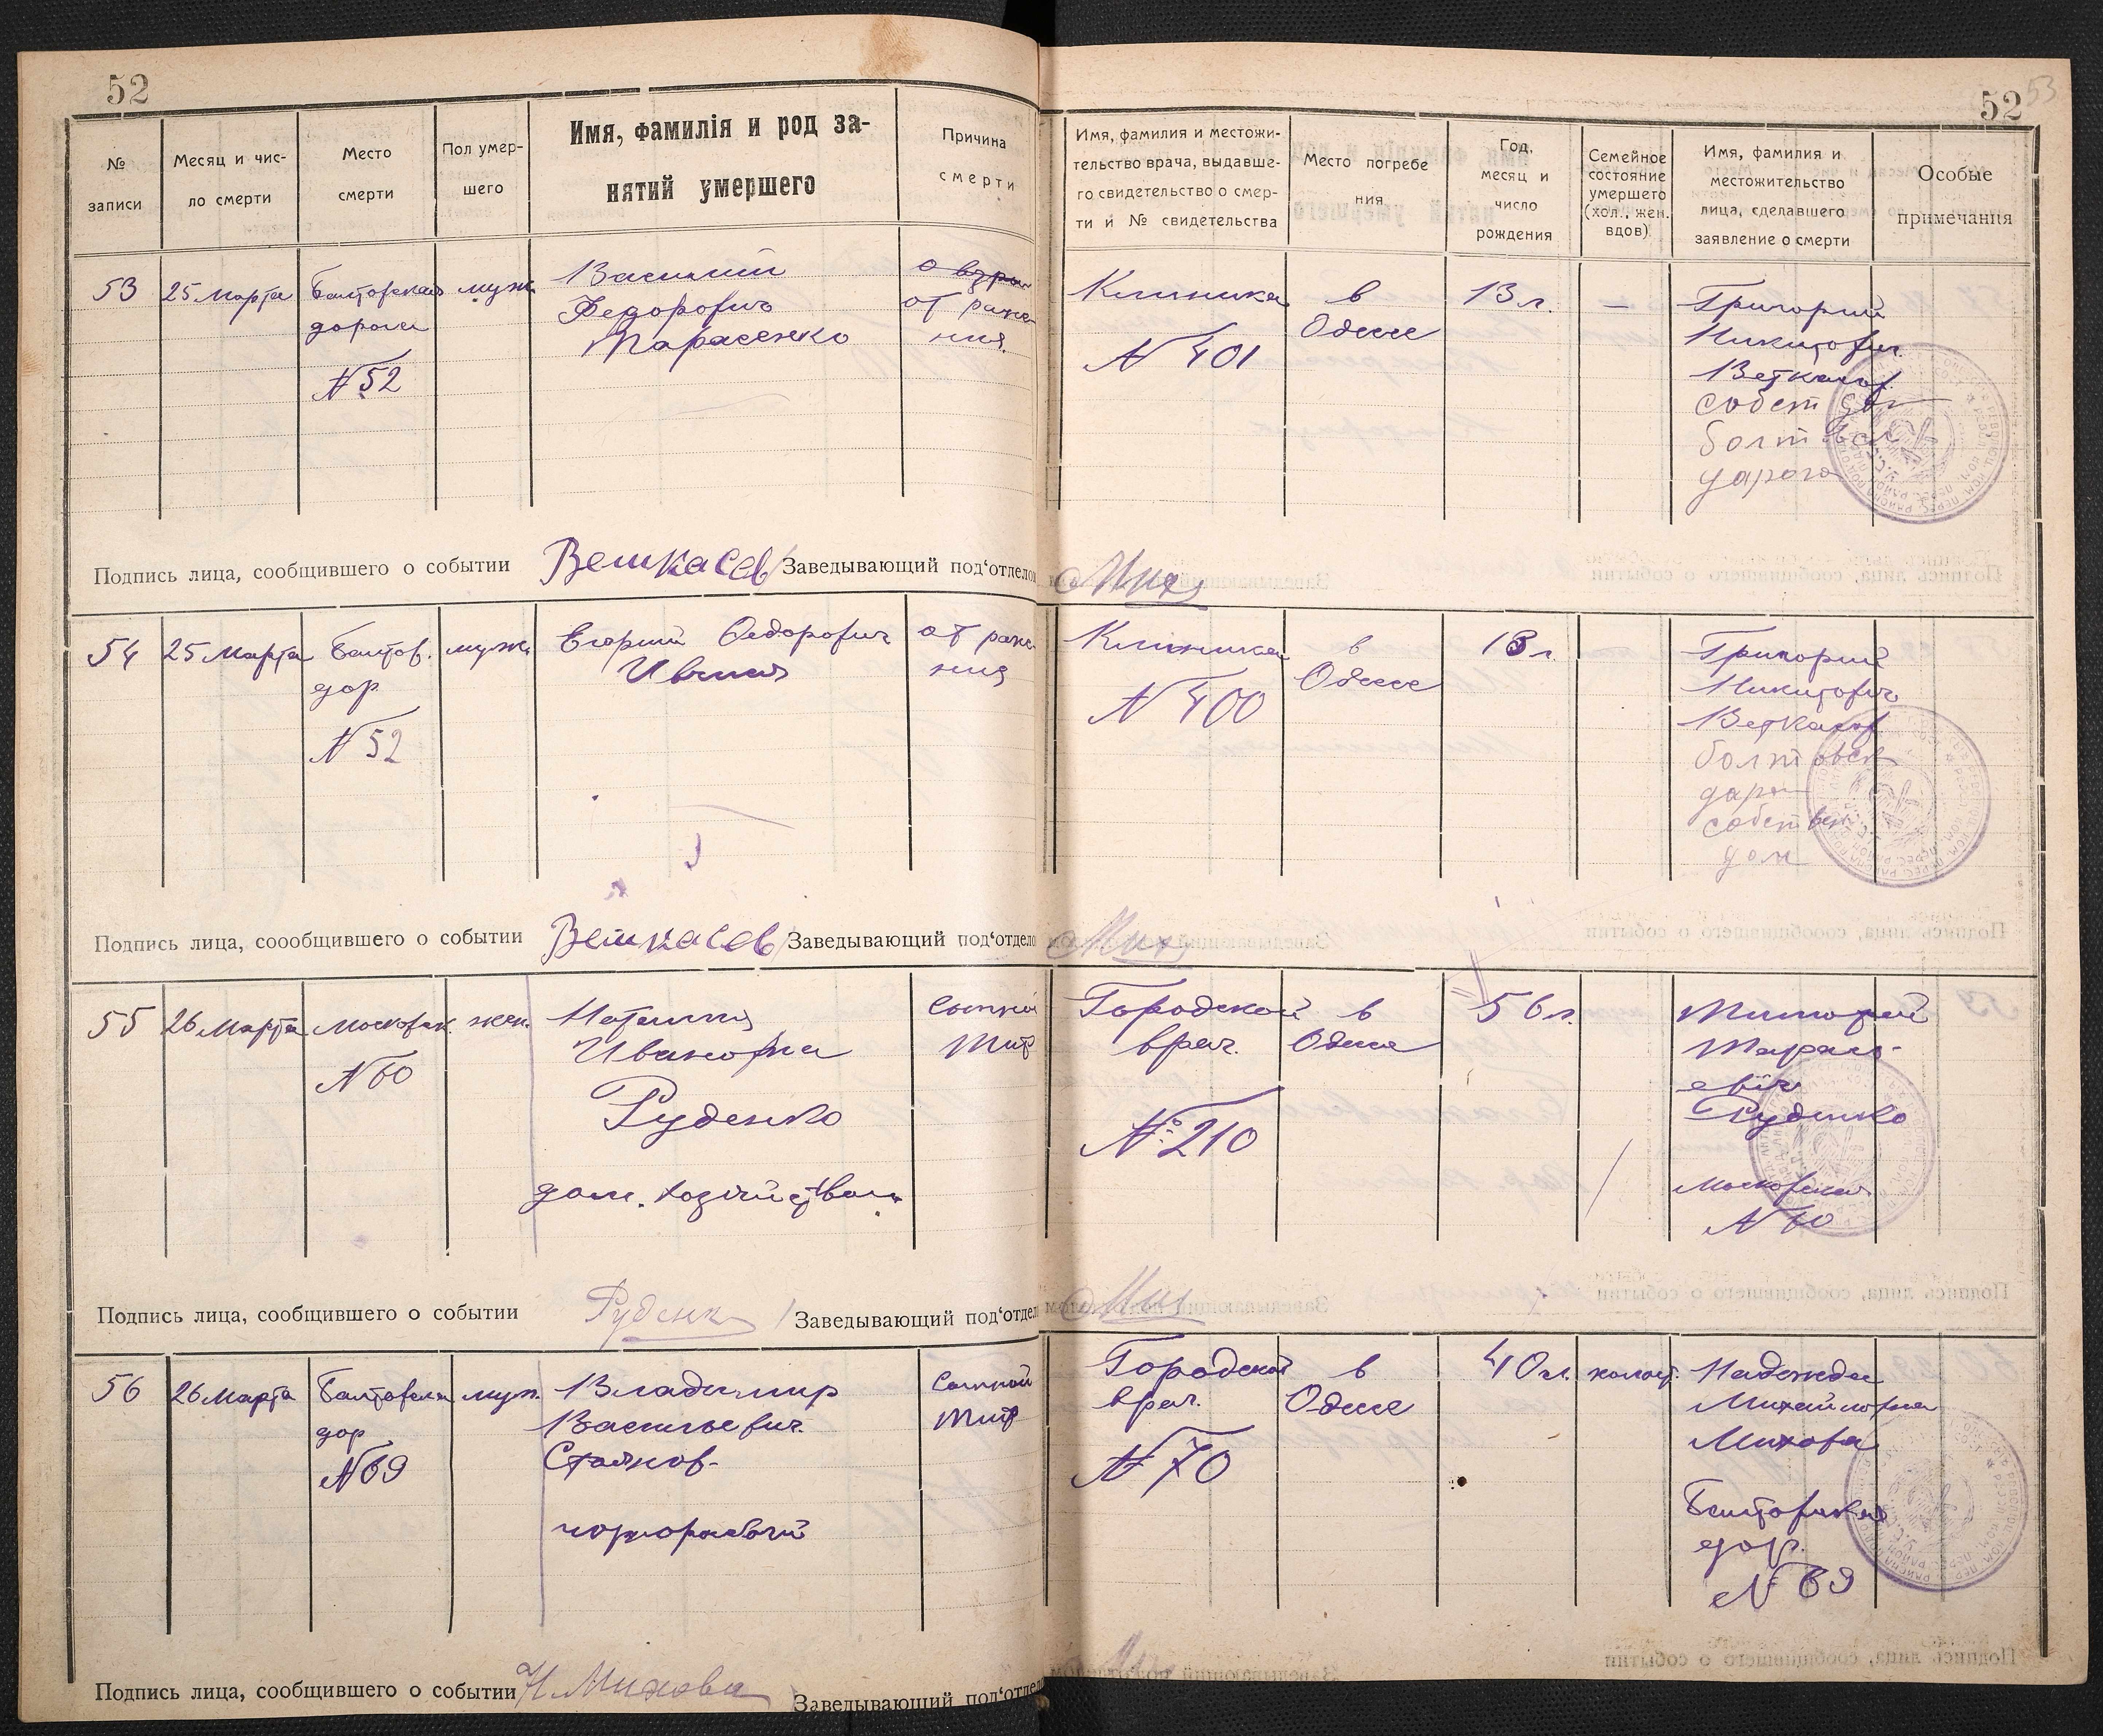 52
№
записи
Месяц и чис-
ло смерти
Место
смерти
Пол умер-
шего
Имя, фамилія и род за-
нятий умершего
Причина
смерти
53
25 Марта
Балтовская
дорога
№ 52
муж.
Василий
Федорович
Тарасенко
от ране-
ния.
Подпись лица, сообщившего о событии
Веткасов
Заведывающий под‘отдело
54
25 Марта
Балтов.
дор
№ 52
муж.
Егорий Федорович
от ране-
ния
Подпись лица, соообщившего о событии
Веткасов
Заведывающий под‘отдело
55
26 Марта
Московск.
№ 60
жен.
Наталия
Ивановна
Руденко
дом. хозяйством
Сыпной
Тиф
Подпись лица, сообщившего о событии
Руденк
Заведывающий под‘отдел
56
26 Марта
Балтовск
дор
№ 69
муж.
Владимир
Васильевич.
Стоянов.
чорнорабочий
Сыпной
Тиф
Подпись лица, сообщившего о событии
Н. Михова
Заведывающий под‘отдел
52
53
Имя, фамилия и местожи-
тельство врача, выдавше-
го свидетельство о смер-
ти и № свидетельства
Место погребе
ния
Год,
месяц и
число
рождения
Семейное
состояние
умершего
(хол., жен.
вдов)
Имя, фамилия и
местожительство
лица, сделавшего
заявление о смерти
Особые
примечания
Клиника
№ 401
в
Одессе
13 л.
—
Григорий
Никитович
Веткасов
собст до
болтовск
дорога
Клиника
№ 400
в
Одессе
13 л.
Григорий
Никитович
Веткасов
болтовск
даро
собствен
дом
Городской
врач.
№ 210
в
Одессе
56 л.
Руденко
Московская
№ 60
Городской
врач.
№ 70
в
Одессе
40 л.
холост.
Надежда
Михайловна
Михова
Балтовская
дор.
№ 69